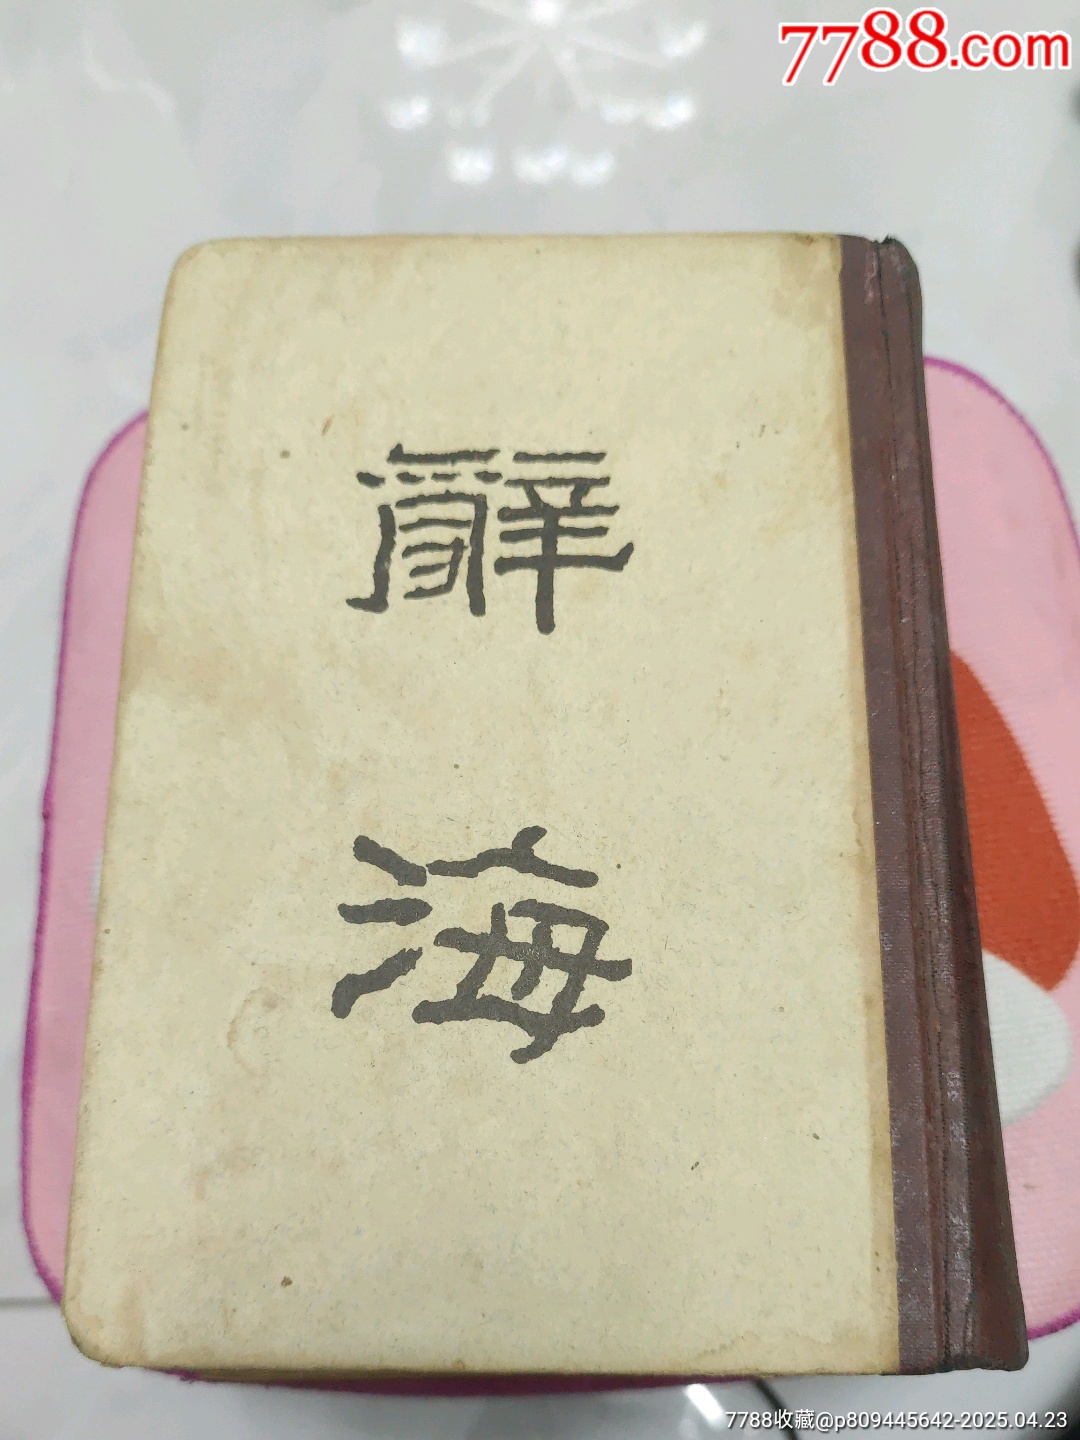 7788.com
辭
海
7788收藏@p809445642-2025.04.23